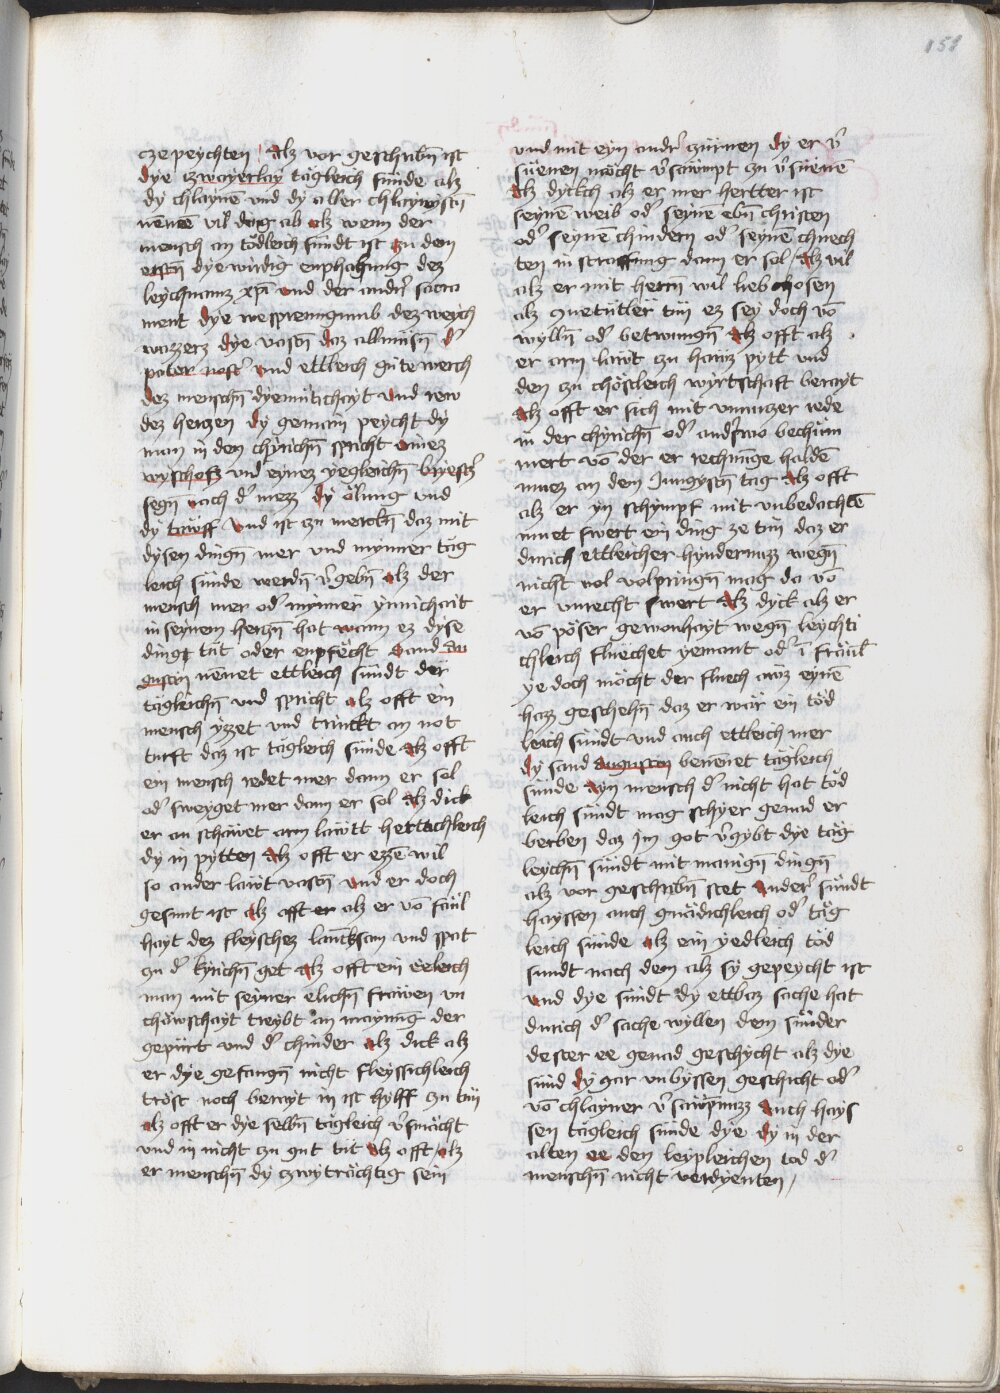 151
cze peychten Alz vor geschribn̄ ist
dye zwayerlay tägleich sünde alz
dy chlaynē vnd dy aller chlaynystn̄
nēmē vil ding ab alz wenn der
mensch an tödleich sündt ist zu den
erstn̄ dye wirdig enphahung dez
leychnamz xp̄i vnd der andn̄ sacra
ment dye besprenngunb dez weych
wazzerz dye vastn̄ daz allmüsn̄ d'
pater nost' vnd ettleich gute werch
dez menschn̄ dyemütichayt vnd rew
dez herzen dy gemain peycht dy
man in den chyrichn̄ spricht ainez
byscholfz vnd eynez yegleichn̄ briest'z
segn̄ nach d' mezz dy ölung vnd
dy tawff vnd ist zu merckn̄ daz mit
dysen dingn̄ mer vnd mynner täg
leich sünde werdn̄ v'gebn̄ alz der
mensch mer od' mynner ynnichait
in seynem herzn̄ hat wann ez dyse
dingt tüt oder enpfecht Sand au
gustin nēnet ettleich sündt der
tägleichn̄ vnd spricht alz offt ein
mensch yzzet vnd trinckt an not
turft daz ist tägleich sünde Alz offt
ein mensch redet mer dann er sol
od' sweyget mer dann er sol Alz dick
er an schawet arm lawtt hertachleich
dy in pytten Alz offt er ezzē wil
so ander lawt vastn̄ vnd er doch
gesunt ist Alz offt er alz er vō fäul
hayt dez fleyschez lanncksam vnd spat
zu d' kyrichn̄ get Alz offt ein eeleich
man mit seyner elichn̄ frawen vn
chawschayt treybt an maynung der
gepürt vnd d' chinder Alz dick alz
er dye gefangn̄ nicht fleyssichleich
tröst noch berayt in ist hylff zu tün
Alz offt er dye selbn̄ tägleich v'smächt
vnd in nicht zu gut tüt Alz offt alz
er menschn̄ dy zwyträchtig sein
vnd mit eyn andr' zürnen dy er v'
süenen möcht v'sawmpt zu v'süenē
Alz dyckch alz er mer hertter ist
seynē weib od' seynē ebn̄ christen
od' seynē chindern od' seynē chnech
ten in straffung dann er sol Alz vil
alz er mit herrn̄ wil lieb chosen
alz zuetütler tün ez sey doch vō
wylln̄ od' betwungn̄ Alz offt alz
er arm lawt zu hawz pytt vnd
den zu chöstleich wyrtschaft berayt
Alz offt er sich mit vnnuczer rede
in der chyrichn̄ od' anderswo bechüm
mert vō der er rechnunge haldē
muez an dem Jungystn̄ tag Alz offt
alz er yn schympf mit vnbedachtē
muet swert ein ding ze tün daz er
durich ettleicher hyndernuzz wegn̄
nicht wol volpringn̄ mag da vō
er vnrecht swert Alz dyck alz er
vō pöser gewonhayt wegn̄ leychti
chleich fluechet yemant od' ī fräuil
ye doch möcht der fluech auz eynē
haz geschehn̄ daz er wär ein töd
leich sündt vnd auch ettleich mer
dy sand Augustin benennet tägleich
sünde Ayn mensch d' nicht hat töd
leich sündt mag schyer genad er
berben daz jm got v'gybt dye täg
leychn̄ sündt mit manign̄ dingn̄
alz vor geschribn̄ stet Ander' sündt
hayssen auch gnädichleich od' täg
leich sünde Alz ein yedleich töd
sundt nach dem alz sy gepeycht ist
vnd dye sündt dy ettbaz sache hat
durich d' sache wyllen dem sünder
dester ee genad geschycht alz dye
sünd dy gar vnbyssen geschicht od'
vō chlayner v'sawmnuzz Auch hays
sen tägleich sünde dye dy in der
alten ee den leypleichen tod d'
menschn̄ nicht verdyenten